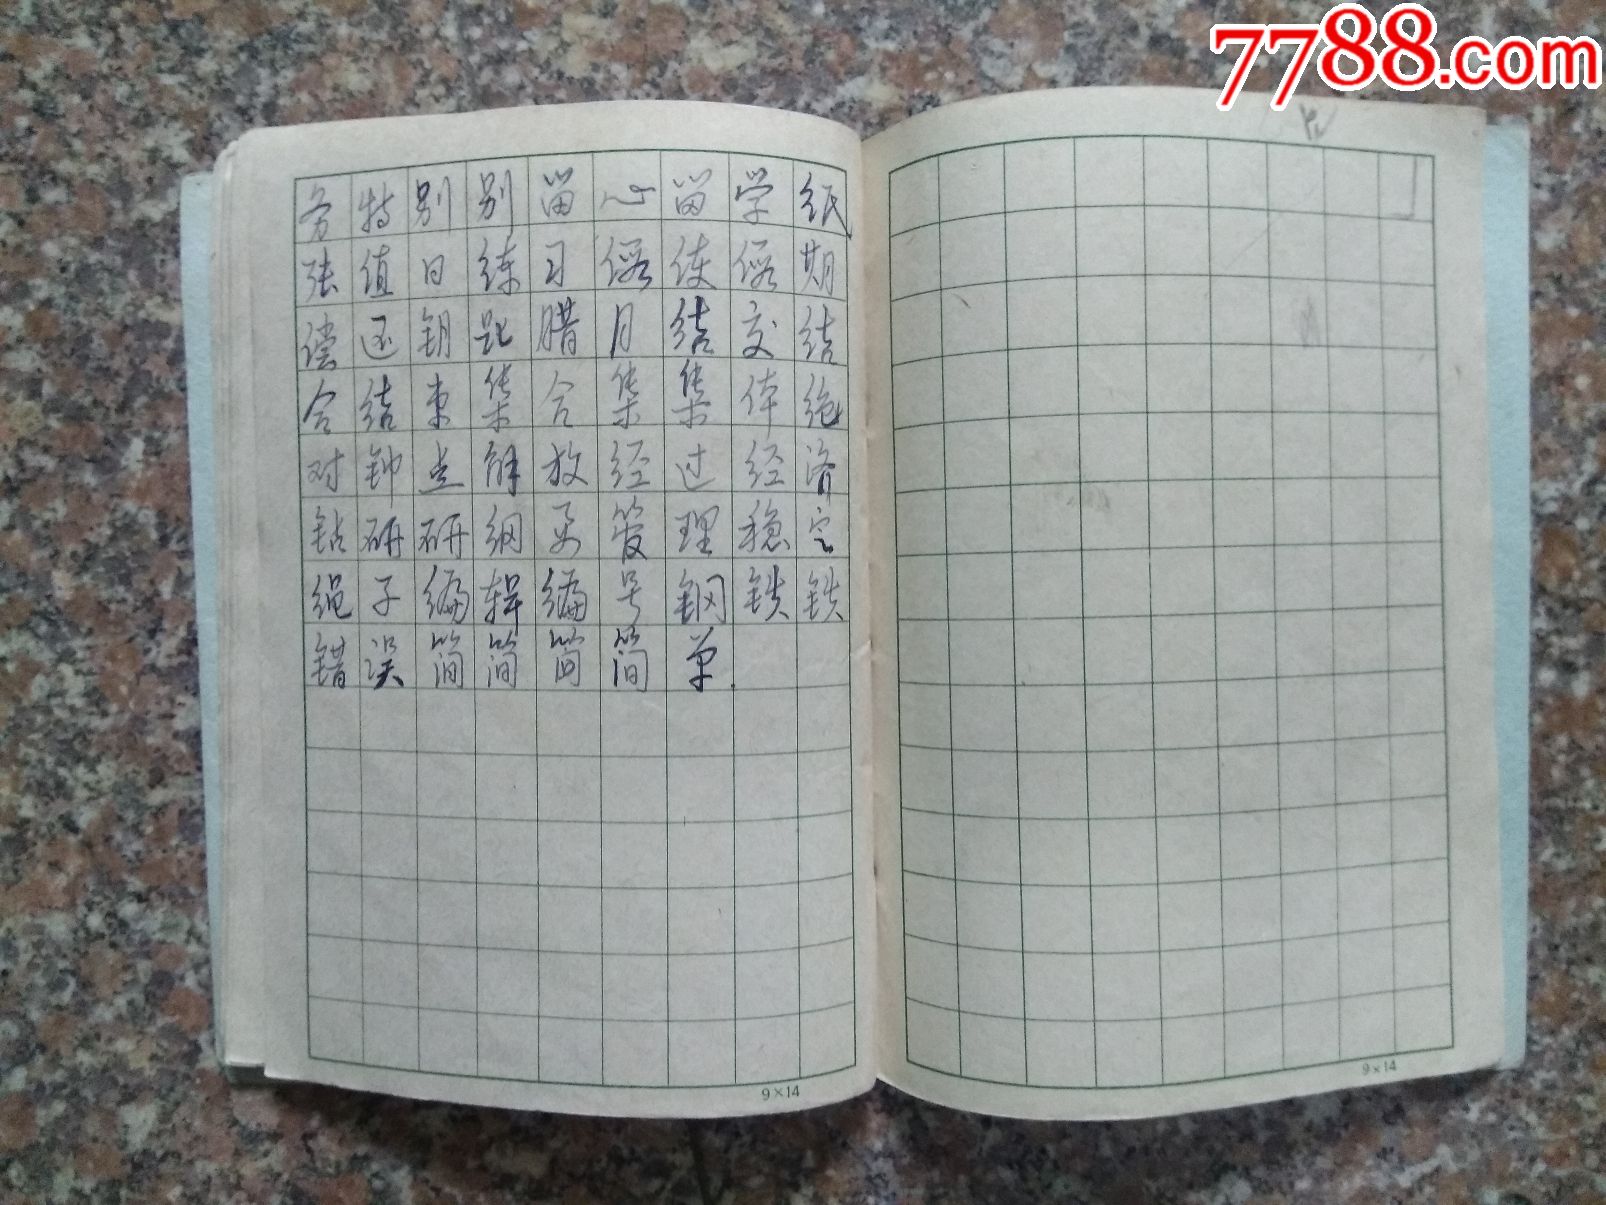 7788.com
务特别别留心留学纸
张值日练习假使假期
偿还钥匙腊月结交结
合结束集合集集体绝
对钟点解放经过经济
钻研研管理稳定
绳子编辑编号钢铁铁
错误简简简简单.
9×14
9×14